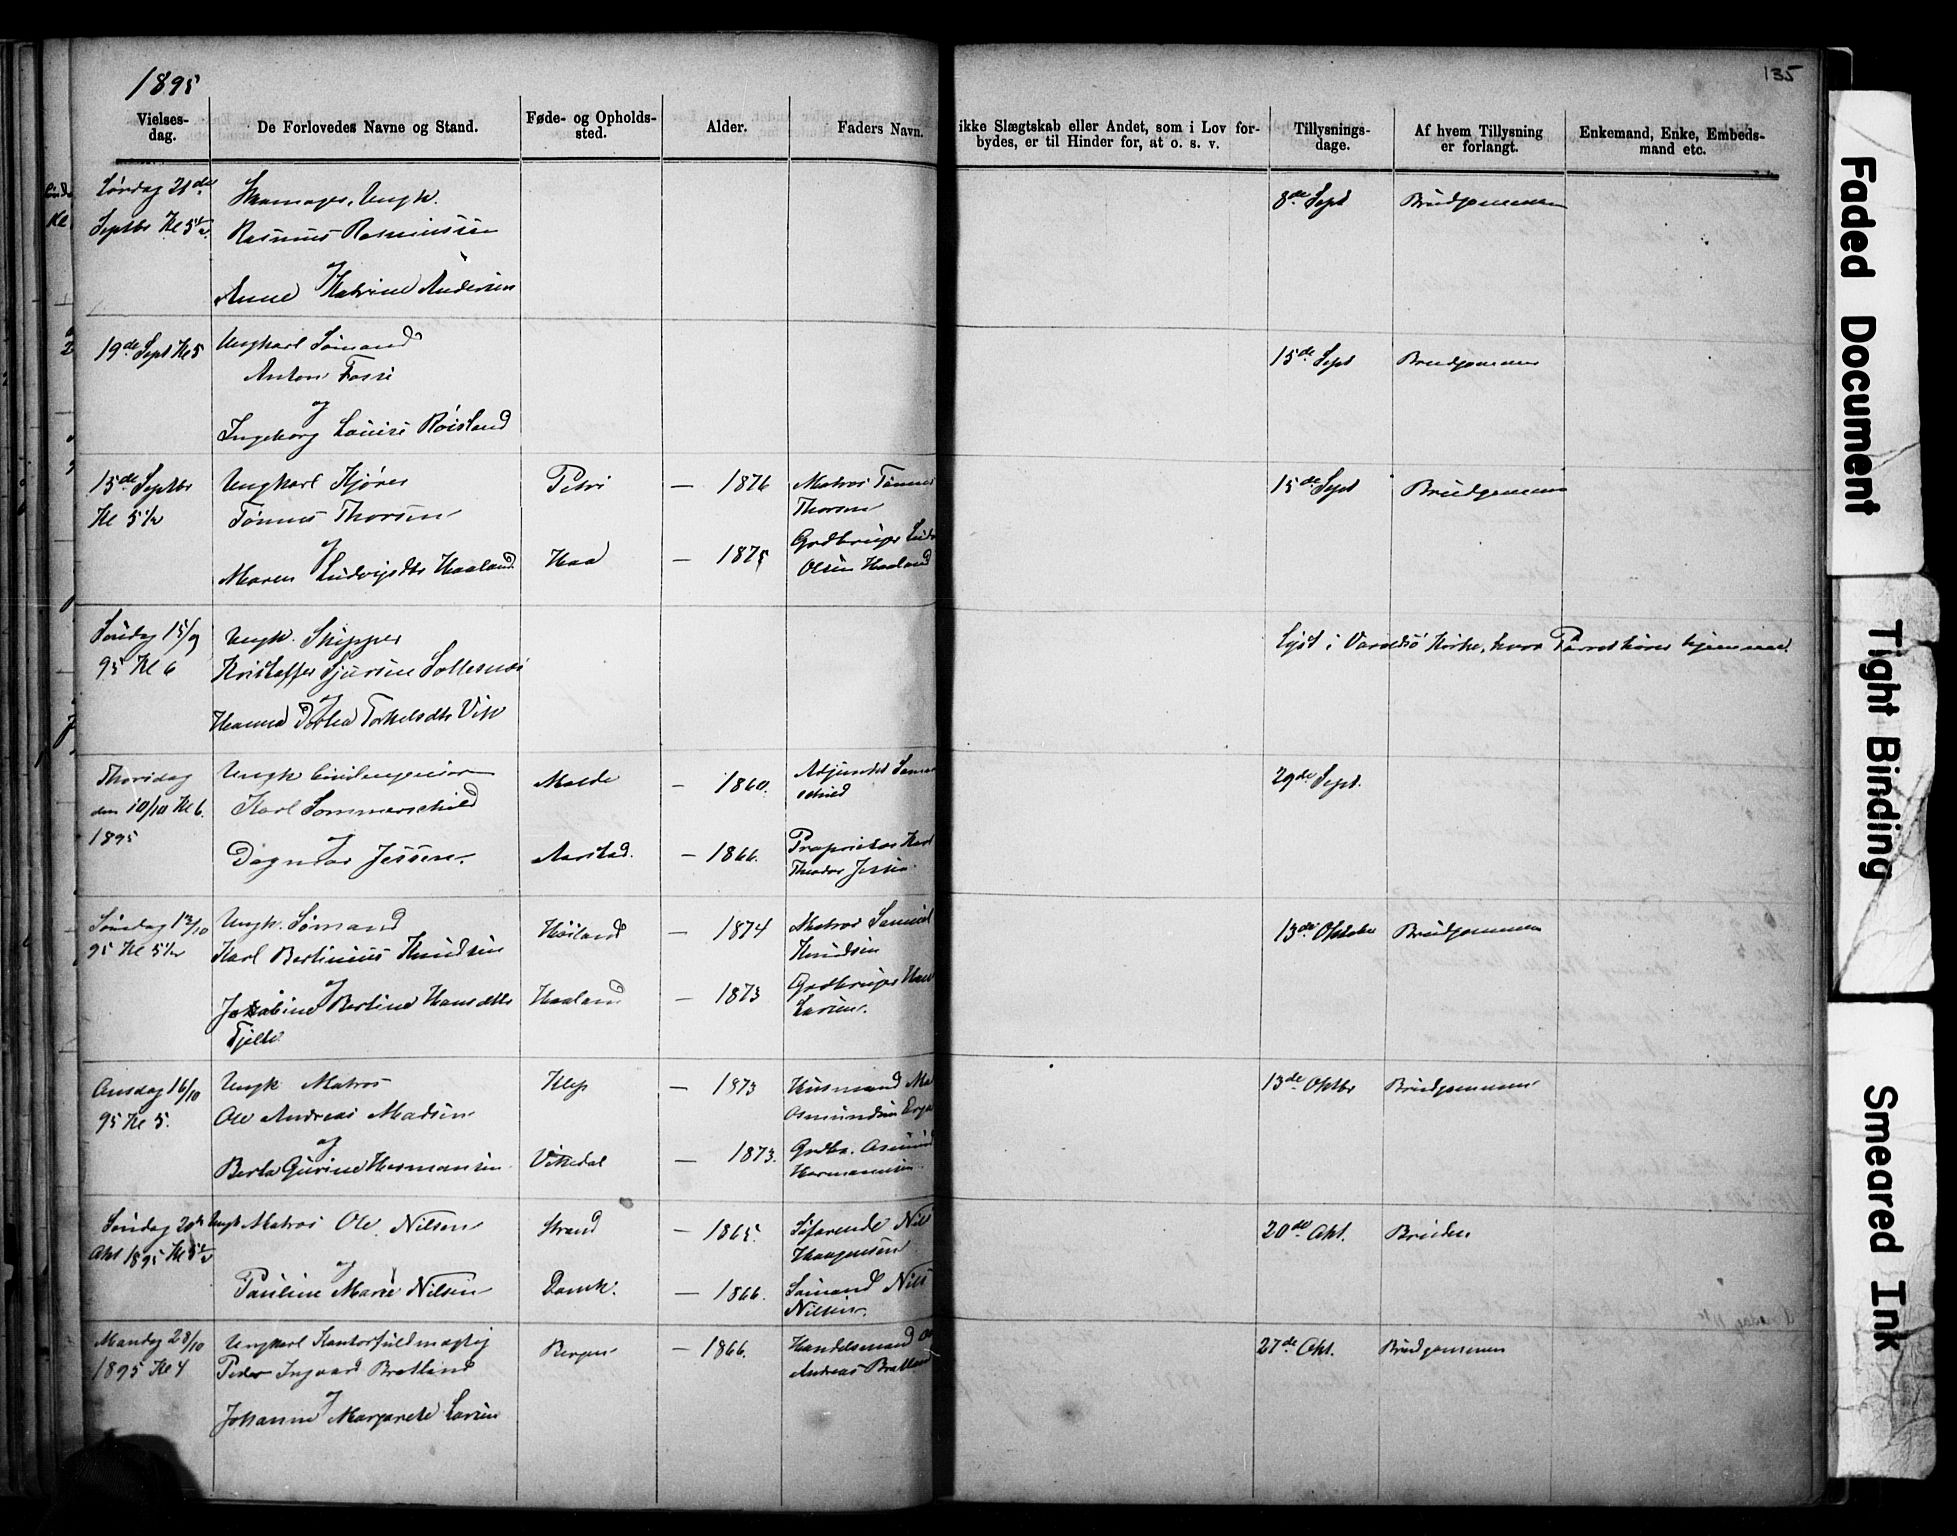 1895
135
Vielses-
dag.
De Forlovedes Navne og Stand.
Føde- og Opholds-
sted.
Alder.
Faders Navn.
ikke Slægtskab eller Andet, som i Lov for-
bydes, er til Hinder for, at o. s. v.
Tillysnings-
dage.
Af hvem Tillysning
er forlangt.
Enkemand, Enke, Embeds-
mand etc.
Lørdag 21de
Septbr Kl 5½
Skomager, Ungk.
Rasmus Rasmussen
og
Anne Katrine Andersen
8de Sept
Brudgommen
19de Sept Kl 5
Ungkarl Sømand
Anton Fosse
og
Ingeborg Louise Røisland
15de Sept
Brudgommen
15de Septbr
Kl 5½
Ungkarl Kjører
Tønnes Thorsen
og
Maren Ludvigsdtr Haaland
Petri
Haa
— 1876
— 1875
Matros Tønnes
Thorsen
Gdbruger
Olsen Haaland
15de Sept
Brudgommen
Søndag 15/9
95 Kl 6
Ungk. Skipper
Kristoffer Sjursen
og
Hanna Torkelsdtr Vik
Lyst i Varaldsø Kirke, hvor Parret hører hjemme.
Thorsdag
den 10/10 Kl 6.
1895
Ungk Civilingeniør
Karl Sommerschild
og
Dagmar Jessen
Molde
Aarstad.
— 1860.
— 1866.
Adjunkt Sommer
schild
Proprietær Karl
Theodor Jessen
29de Sept.
Søndag 13/10
95 Kl 5½
Ungk. Sømand
Karl Bertinius Knudsen
og
Jakobine Bertine Hansdtr
Tjelta
Høiland
Haaland
— 1874
— 1873
Matros Samuel
Knudsen
Gdbruger Hans
Larsen.
13de Oktober
Brudgommen
Onsdag 16/10
95 Kl 5.
Ungk Matros
Ole Andreas Madsen
og
Berta Gurine Hermansen
Klep
Vikedal
— 1873
— 1873.
Husmand
Osmundsen
Gdbr. Asmund
Hermansen
13de Oktbr
Brudgommen
Søndag 20de
Okt 1895 Kl 5½
Ungk Matros Ole Nilsen
og
Pauline Marie Nilsen
Strand
Domk.
— 1865.
— 1866.
Søfarende Nils
Haagensen
Sømand Nils
Nilsen.
20de Okt.
Bruden
Mandag 28/10
1895 Kl 4
Ungkarl Kontorfuldmægtig
Peder Ingvard Bratland
og
Johanne Margarete Larsen
Bergen
— 1866.
Handelsmand
Andreas Bratland
27de Okt.
Brudgommen
Faded Document
Tight Binding
Smeared Ink